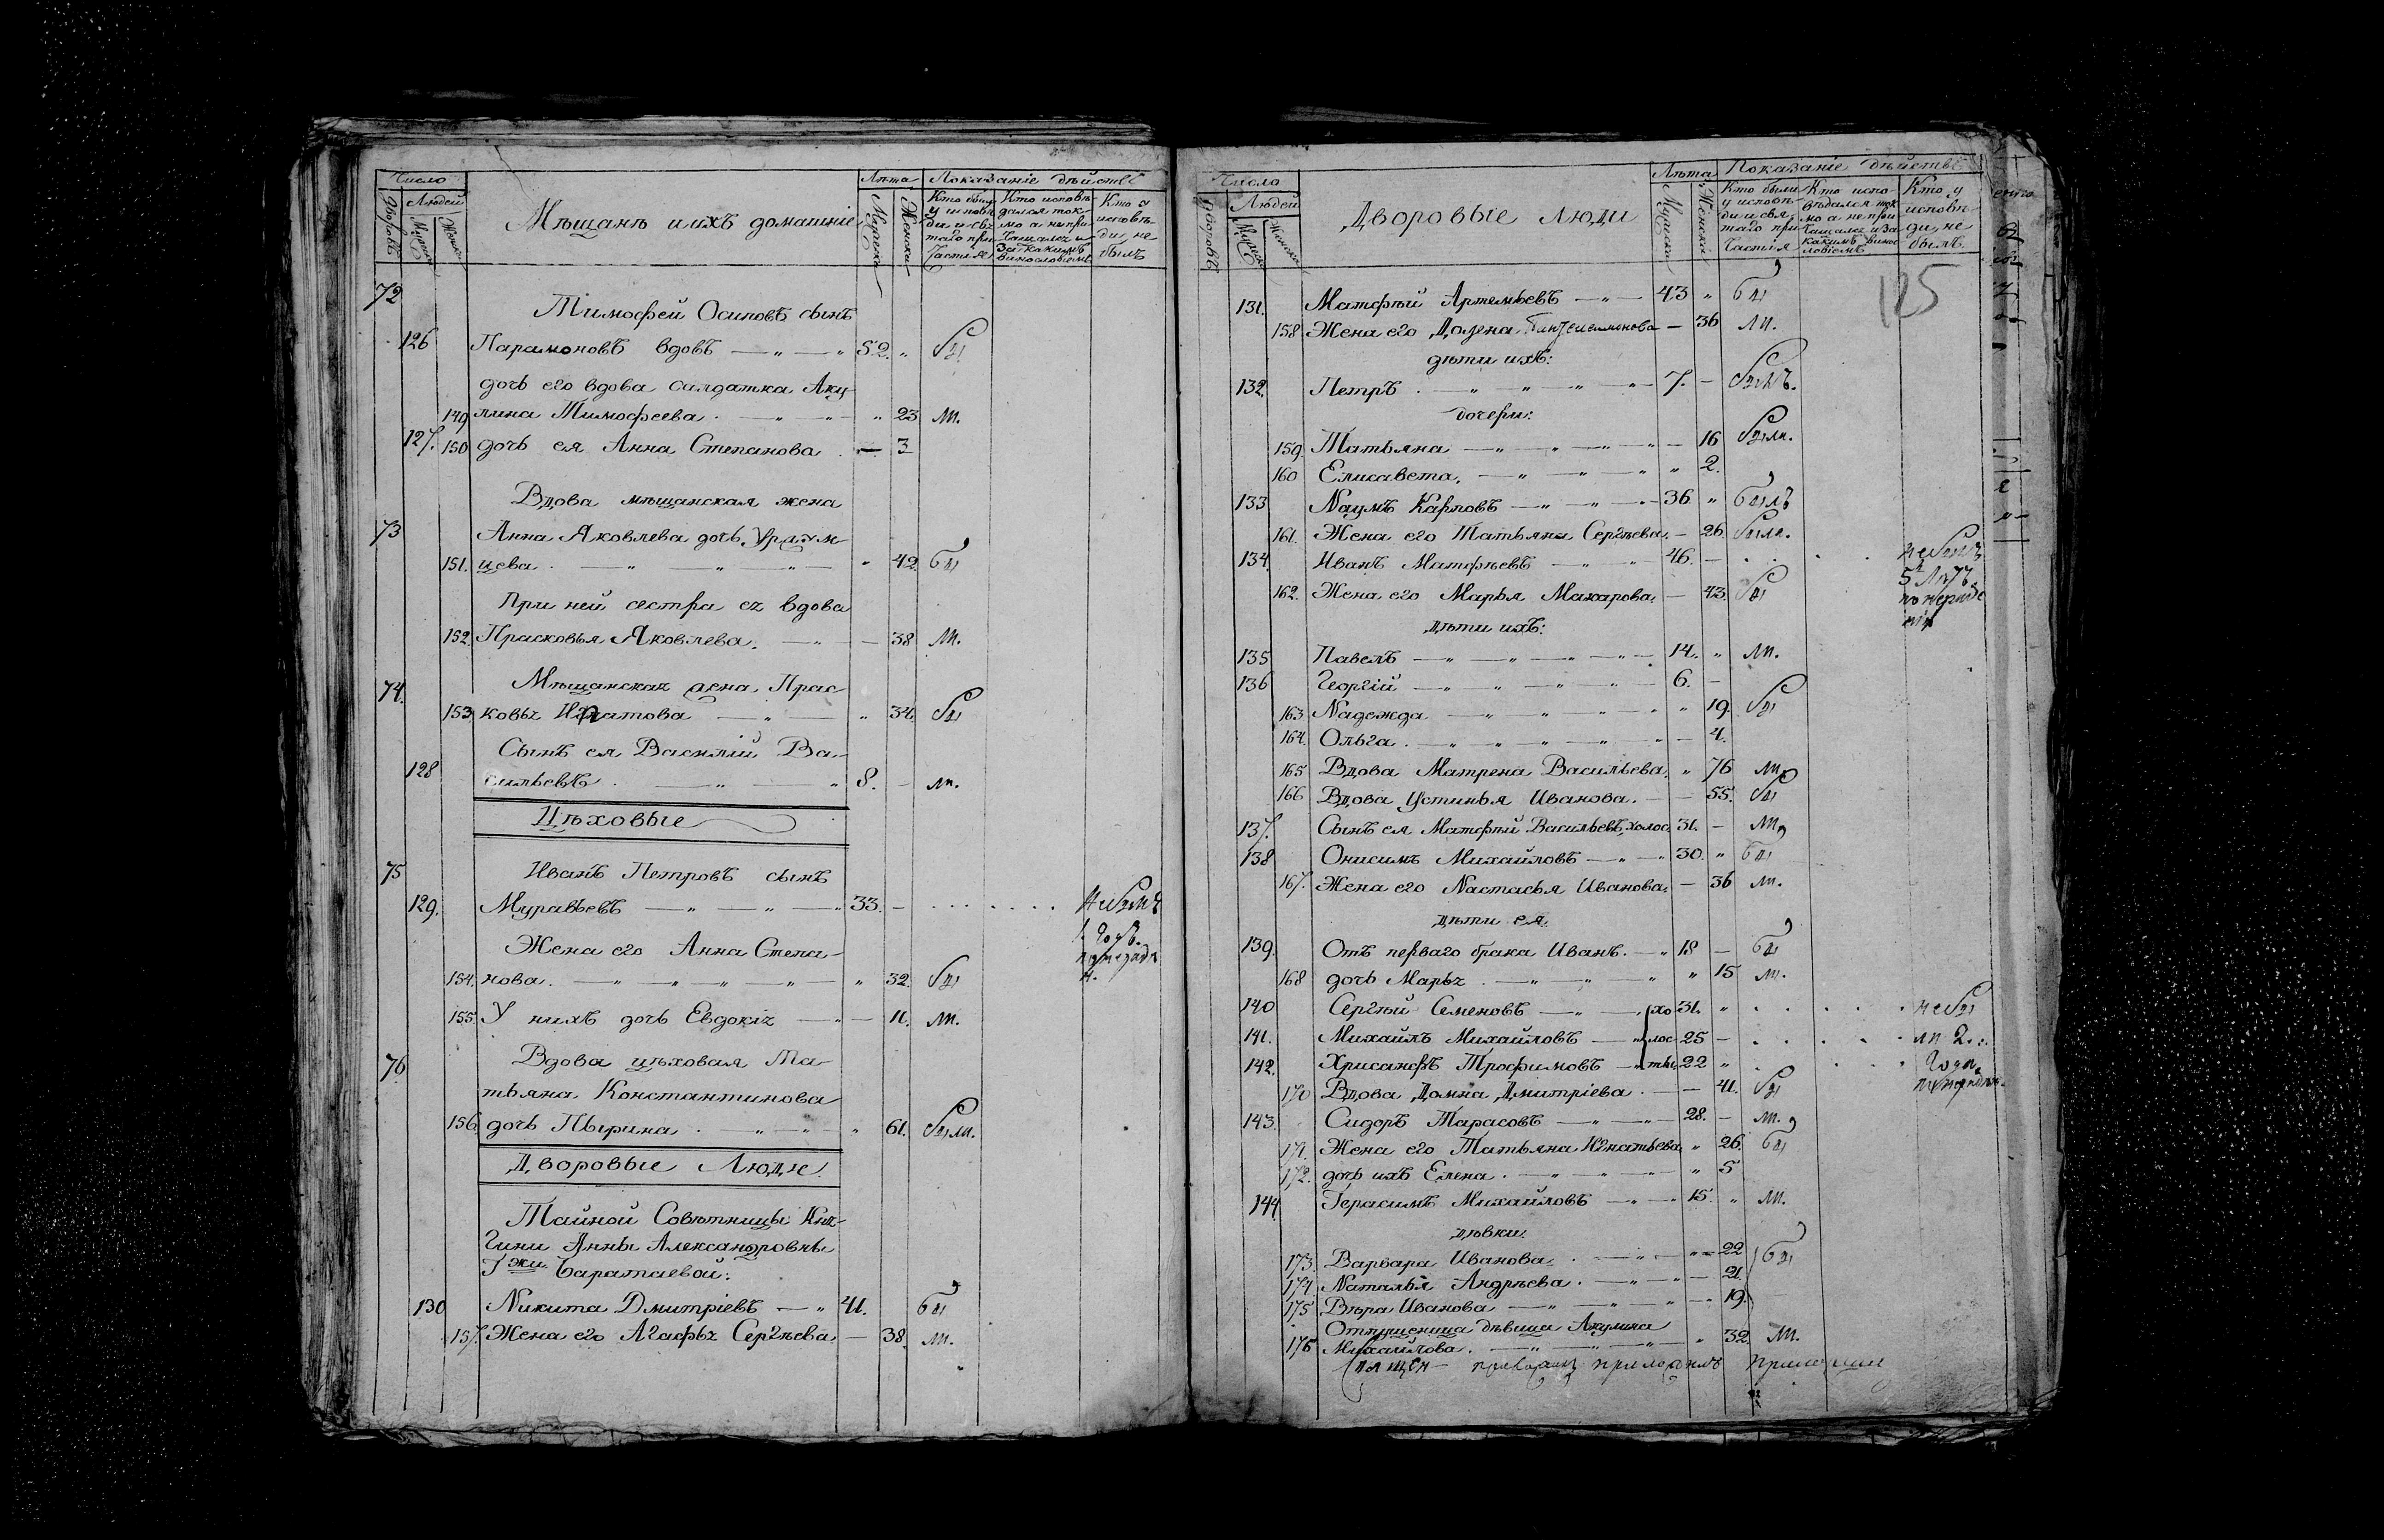 Число
Лѣта
Показаніе дѣйствъ
дворовъ
Людей
Мужеска
Женска
Мѣщанъ и ихъ домашніе
Мужеска
Женска
Кто были
у исповѣ-
ди и свя-
таго при-
частія
Кто исповѣ-
дался ток-
мо а непри-
чащался и
за какимъ
винословіемъ
Кто у
исповѣ-
ди не
былъ
72
Тимофей Осиповъ сынъ
126 Парамоновъ вдовъ 52. бы
дочь его вдова салдатка Аку-
149 лина Тимофеева 23 ли.
127. 150 дочь ея Анна Степанова 3
Вдова мѣщанская жена
73 Анна Яковлева дочь
151. цева 42. бы
При ней сестра ея вдова
152. Прасковья Яковлева. 38 ли.
74. Мѣщанская жена Прас-
153 ковья Игнатова 34. бы
Сынъ ея Василій Ва-
128 сильевъ 8. ли.
Цѣховые
75 Иванъ Петровъ сынъ
129. Муравьевъ 33. небылъ
1. годъ.
Жена его Анна Степа-
154. нова. 32. бы
155. У нихъ дочь Евдокія 11. ли.
76 Вдова цѣховая Та-
тьяна Константинова
156. дочь Пырина 61. были.
Дворовые Люди.
Тайной Совѣтницы Кня-
гини Анны Александровны
Гжи Баратаевой:
130 Никита Дмитріевъ 41. бы
157. Жена его Агафья Сергѣева 38. ли.
Число
Лѣта
Показаніе дѣйствъ
дворовъ
Людей
Мужеска
Женска
Дворовые люди
Мужеска
Женска
Кто были
у исповѣ-
ди и свя-
таго при-
частія
Кто испо-
вѣдался ток-
мо а непри-
чащался и за
какимъ винос-
ловіемъ
Кто у
исповѣ-
ди не
былъ.
125
131. Матфѣй Артемьевъ 43 бы
158 Жена его 36 ли.
дѣти ихъ:
132. Петръ 7. былъ.
дочери:
159. Татьяна 16 были.
160 Елисавета. 2.
133 Наумъ Карповъ 36 былъ
161. Жена его Татьяна Сергѣева. 26. были.
134. Иванъ Матфѣевъ 46. небылъ
162. Жена его Марья Макарова. 43. бы
5 лѣтъ.
дѣти ихъ:
135 Павелъ 14. ли.
136 Георгій 6.
163 Надежда 19. бы
164. Ольга. 4.
165 Вдова Матрена Васильева. 76 ли
166 Вдова Устинья Иванова. 55. бы
137. Сынъ ея Матфѣй Васильевъ, холос. 31. ли
138 Онисимъ Михайловъ 30. бы
167. Жена его Настасья Иванова. 36 ли.
дѣти ея.
139. Отъ перваго брака Иванъ. 18 бы
168 дочь Марья 15 ли.
140 Сергѣй Семеновъ хо 31. небы
141. Михайлъ Михайловъ лос 25 ли 2.
142. Хрисанфъ Трофимовъ ты 22 года
170 Вдова Домна Дмитріева 41. бы
143. Сидоръ Тарасовъ 28. ли.
171. Жена его Татьяна Игнатьева 26. бы
172. дочь ихъ Елена 5
144. Герасимъ Михайловъ 15. ли.
дѣвки.
173. Варвара Иванова. 22 бы
174 Наталья Андрѣева. 21.
175 Вѣра Иванова 19.
Отпущеница дѣвица Акулина
176 Михайлова. 32. ли.